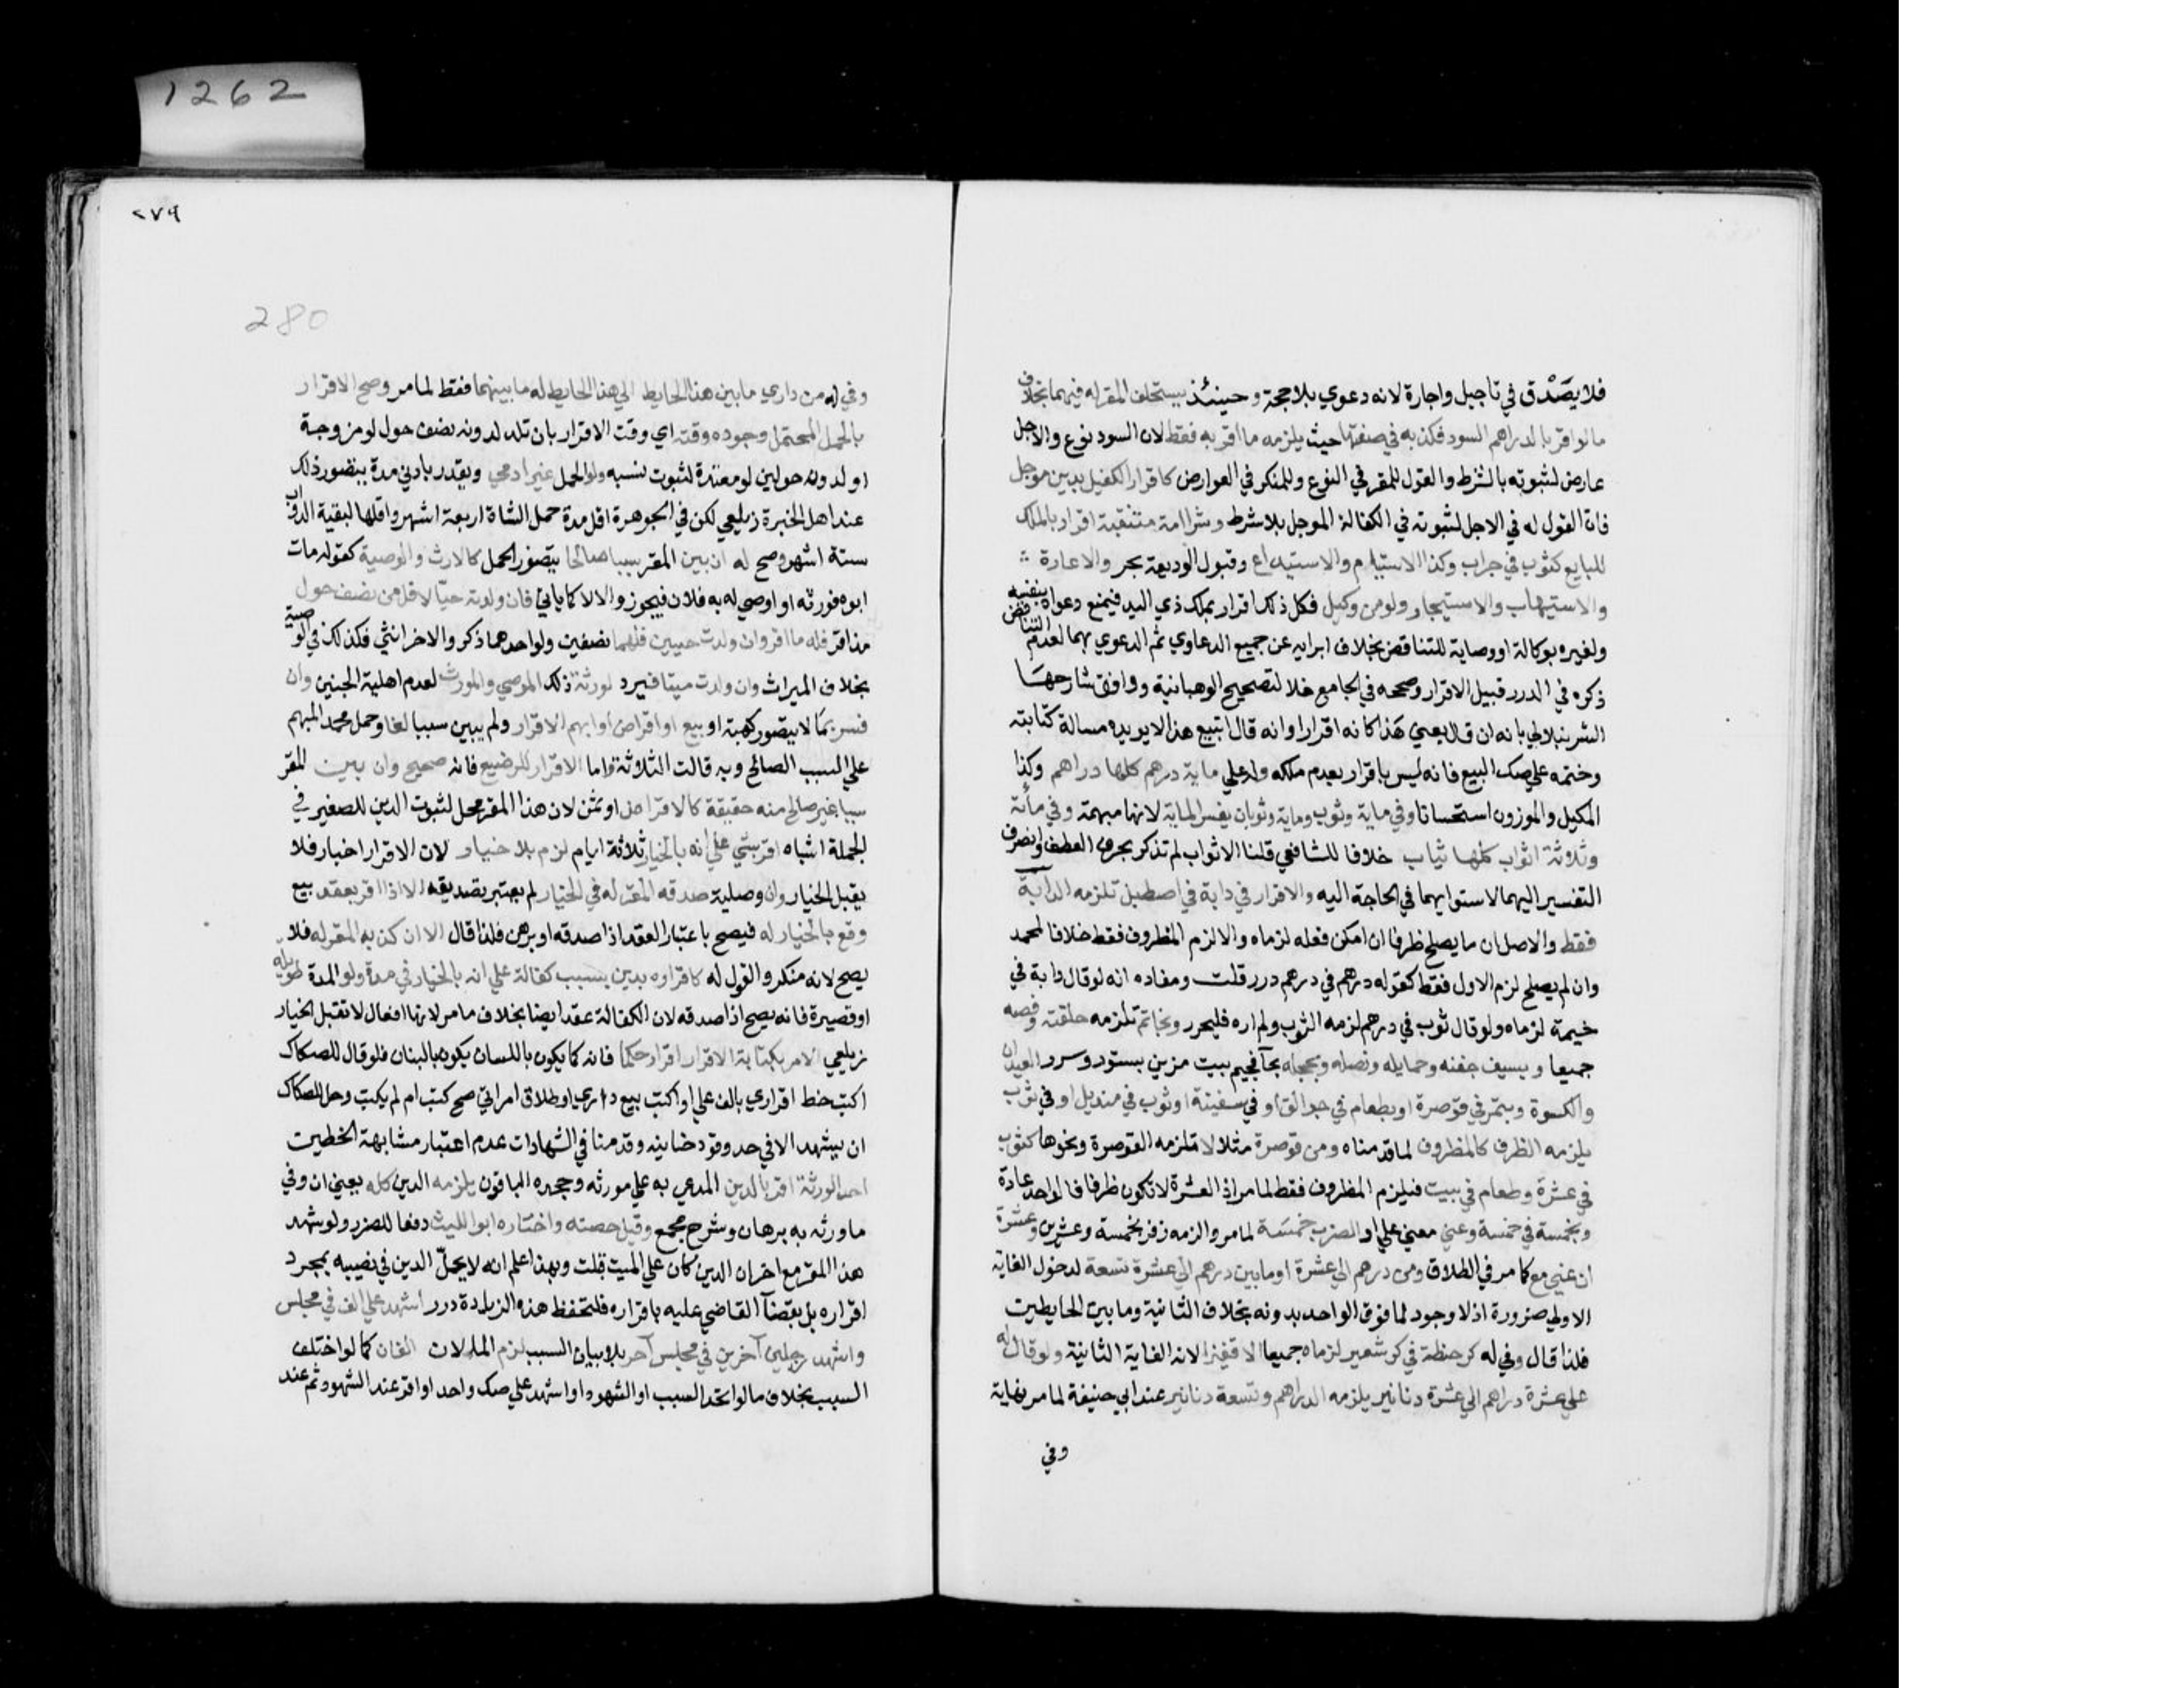 1262
فلا يصدق في تاجيل واجارة لانه دعوي بلا حجة وحينئذ يستحلف المقر له فيهما بخلاف
ما لو اقر بالدراهم السود فكذبه في صفتها حيث يلزمه ما اقر به فقط لان السود نوع والاجل
عارض لثبوته بالشرط والقول للمقر في النوع وللمنكر في العوارض كاقرار الكفيل بدين موجل
فان القول له في الاجل لثبوته في الكفالة الموجل بلا شرط وشرا امة متنقبة اقرار بالملك
للبايع كثوب في جراب وكذا الاستيام والاستيداع وقبول الوديعة بحر والاعارة
والاستيهاب والاستيجار ولو من وكيل فكل ذلك اقرار بملك ذي اليد فيمنع دعواه لنفسه
ولغيره بوكالة او وصاية للتناقض بخلاف ابرايه عن جميع الدعاوي ثم الدعوي بهما لعدم التناقض
ذكره في الدرر قبيل الاقرار وصححه في الجامع خلا لتصحيح الوهبانية ووافق شارحها
الشرنبلالي بانه ان قال بعني هذا كانه اقرارا وانه قال اتبيع هذا لا يويده مسالة كتابته
وختمه علي صك البيع فانه ليس باقرار بعدم ملكه وله علي ماية درهم كلها دراهم وكذا
المكيل والموزون استحسانا وفي ماية وثوب وماية وثوبان يفسر الماية لانها مبهمة وفي مائة
وثلاثة اثواب كلها ثياب خلافا للشافعي قلنا الاثواب لم تذكر بحرف العطف وانصرف
التفسير اليهما لاستوايهما في الحاجة اليه والاقرار في دابة في اصطبل تلزمه الدابة
فقط والاصل ان ما يصلح ظرفا ان امكن نقله لزماه والا لزم المظروف فقط خلافا لمحمد
وان لم يصلح لزم الاول فقط كقوله درهم في درهم درر قلت ومفاده انه لو قال دابة في
خيمة لزماه ولو قال ثوب في درهم لزمه الثوب ولم اره فليحرر وبخاتم تلزمه حلقته وفصه
جميعا وبسيف جفنه وحمايله ونصله وبحجلة بيت مزين بستور وسرر العيدان
والكسوة وبتمر في قوصرة او بطعام في جوالق او في سفينة او ثوب في منديل او في ثوب
يلزمه الظرف كالمظروف لما قدمناه ومن قوصرة مثلا لا تلزمه القوصرة ونحوها كثوب
في عشرة وطعام في بيت فيلزم المظروف فقط لما مر اذ العشرة لا تكون ظرفا لواحد عادة
وبخمسة في خمسة وعني معني علي او الضرب خمسة لما مر والزمه زفر بخمسة وعشرين وعشرة
ان عني مع كما مر في الطلاق ومن درهم الي عشرة او ما بين درهم الي عشرة تسعة لدخول الغاية
الاولي ضرورة اذ لا وجود لما فوق الواحد بدونه بخلاف الثانية وما بين الحايطين
فلذا قال وفي له كر حنطة في كر شعير لزماه جميعا الا قفيزا لانه الغاية الثانية ولو قال له
علي عشرة دراهم الي عشرة دنانير يلزمه الدراهم وتسعة دنانير عند ابي حنيفة لما مر نهاية
وفي
٢٧٩
280
وفي له من داري ما بين هذا الحايط الي هذا الحايط له ما بينهما فقط لما مر وصح الاقرار
بالحمل المحتمل وجوده وقته اي وقت الاقرار بان تلد لدون نصف حول لو مزوجة
او لدون حولين لو معتدة لثبوت نسبه ولو الحمل غير ادمي ويقدر بادني مدة يتصور ذلك
عند اهل الخبرة زيلعي لكن في الجوهرة اقل مدة حمل الشاة اربعة اشهر واقلها لبقية الدواب
ستة اشهر وصح له ان بين المقر سببا صالحا يتصور الحمل كالارث والوصية كقوله مات
ابوه فورثه او اوصي له به فلان فيجوز والا لا كما ياتي فان ولدته حيا لاقل من نصف حول
مذ اقر فله ما اقر وان ولدت حيين فلهما نصفين ولو احدهما ذكر والاخر انثي فكذلك في الوصية
بخلاف الميراث وان ولدت ميتا فيرد لورثة ذلك الموصي والمورث لعدم اهلية الجنين وان
فسر بما لا يتصور كهبة او بيع او اقراض او ابهم الاقرار ولم يبين سببا لغا وحمل محمد المبهم
علي السبب الصالح وبه قالت الثلاثة واما الاقرار للرضيع فانه صحيح وان بين المقر
سببا غير صالح منه حقيقة كالاقراض او ثمن لان هذا المقر محل لثبوت الدين للصغير في
الجملة اشباه اقر بشي علي انه بالخيار ثلاثة ايام لزم بلا خيار لان الاقرار اخبار فلا
يقبل الخيار وان وصلية صدقه المقر له في الخيار لم يعتبر تصديقه الا اذا اقر بعقد بيع
وقع بالخيار له فيصح باعتبار العقد اذا صدقه او برهن فلذا قال الا ان كذبه المقر له فلا
يصح لانه منكر والقول له كاقراره بدين بسبب كفالة علي انه بالخيار في مدة ولو المدة طويلة
او قصيرة فانه يصح اذا صدقه لان الكفالة عقد ايضا بخلاف ما مر لانها افعال لا تقبل الخيار
زيلعي الامر بكتابة الاقرار اقرار حكما فانه كما يكون باللسان يكون بالبنان فلو قال للصكاك
اكتب خط اقراري بالف علي او اكتب بيع داري او طلاق امراتي صح كتب ام لم يكتب وحل للصكاك
ان يشهد الا في حد وقود خانية وقدمنا في الشهادات عدم اعتبار مشابهة الخطين
احد الورثة اقر بالدين المدعي به علي مورثه وجحده الباقون يلزمه الدين كله يعني ان وفي
ما ورثه به برهان وشرح مجمع وقيل حصته واختاره ابو الليث دفعا للضرر ولو شهد
هذا المقر مع اخر ان الدين كان علي الميت قلت وبهذا علم انه لا يحل الدين في نصيبه بمجرد
اقراره بل بقضا القاضي عليه باقراره فلتحفظ هذه الزيادة درر اشهد علي الف في مجلس
واشهد رجلين آخرين في مجلس آخر بلا بيان السبب لزم المالان الفان كما لو اختلف
السبب بخلاف ما لو اتحد السبب او الشهود او اشهد علي صك واحد او اقر عند الشهود ثم عند